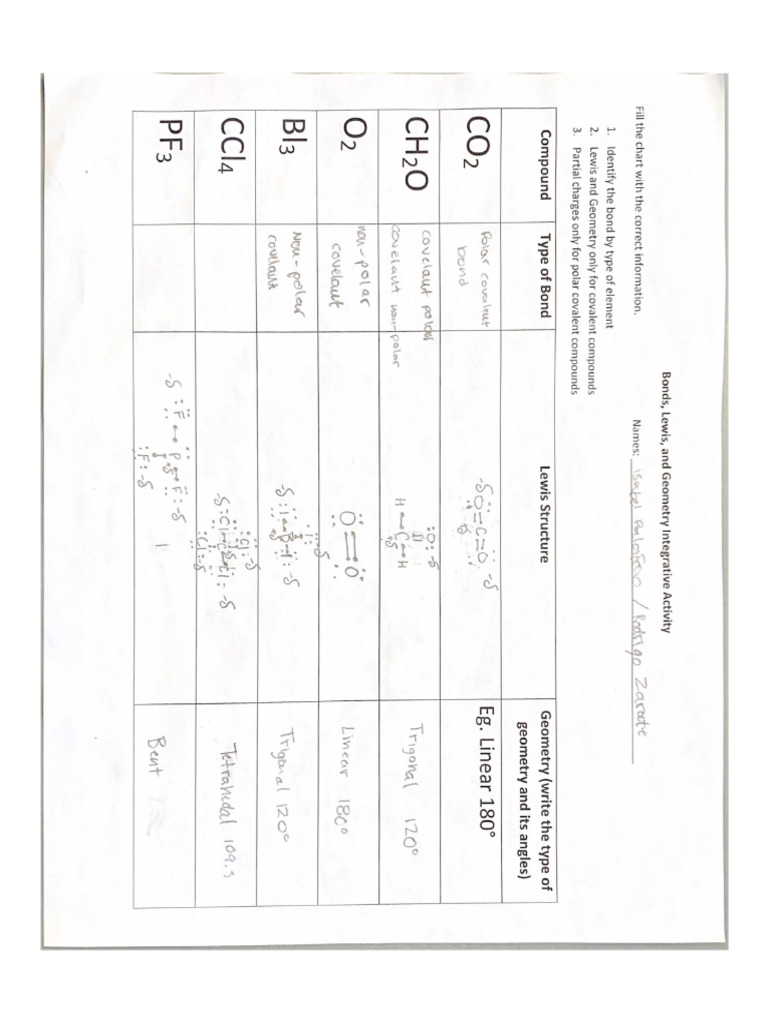 Bonds, Lewis, and Geometry Integrative Activity
Fill the chart with the correct information.
Names: Isabel / Rodrigo Zarate
1. Identify the bond by type of element
2. Lewis and Geometry only for covalent compounds
3. Partial charges only for polar covalent compounds
Compound
Type of Bond
Lewis Structure
Geometry (write the type of
geometry and its angles)
CO₂
Polar covalent
bond
-δ O=C=O -δ
Eg. Linear 180°
CH₂O
covelaut polar
covelaut non-polar
:O: -δ
H C H
Trigonal 120°
O₂
non-polar
covelaut
O=O
Linear 180°
BI₃
Non-polar
covelaut
-δ :I B I: -δ
Trigonal 120°
CCl₄
-δ :Cl C Cl: -δ
:Cl: -δ
Tetrahedal 109.5
PF₃
-δ :F P F: -δ
:F: -δ
Bent